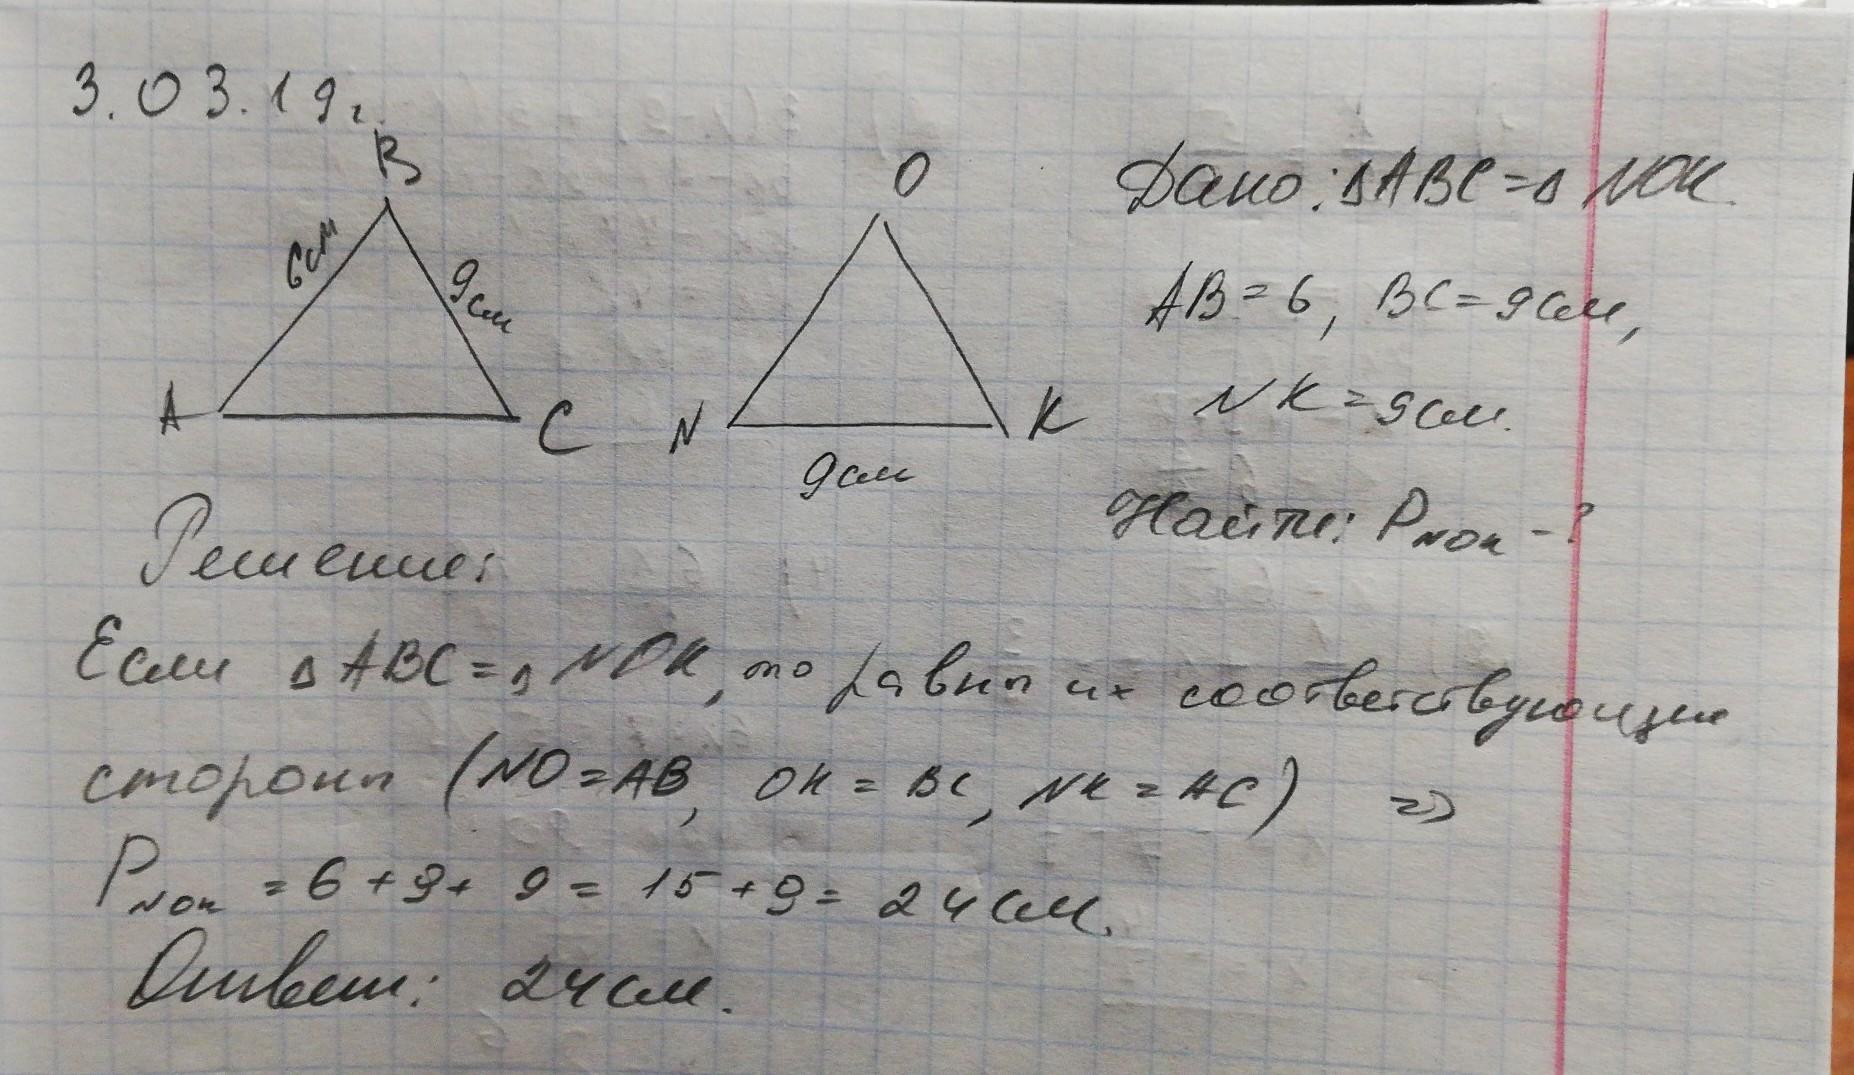 3.03.19г.
B
6см
9см
A
C
O
N
K
9см
Дано: Δ ABC = Δ NOK.
AB = 6, BC = 9 см,
NK = 9 см.
Найти: P NOK - ?
Решение:
Если Δ ABC = Δ NOK, то равны их соответствующие
стороны (NO = AB, OK = BC, NK = AC) =>
P NOK = 6 + 9 + 9 = 15 + 9 = 24 см.
Ответ: 24 см.